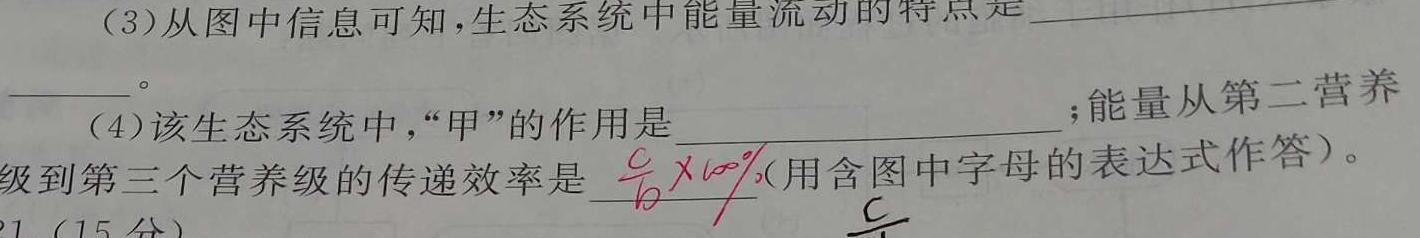 (3)从图中信息可知,生态系统中能量流动的特点是
。
(4)该生态系统中,“甲”的作用是 ;能量从第二营养
级到第三个营养级的传递效率是 c/b×100% (用含图中字母的表达式作答)。
21 (15分)
c